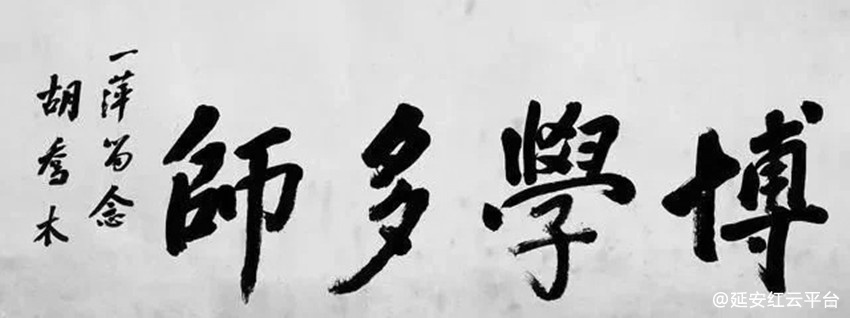 博學多師
一萍留念
胡喬木
@延安红云平台